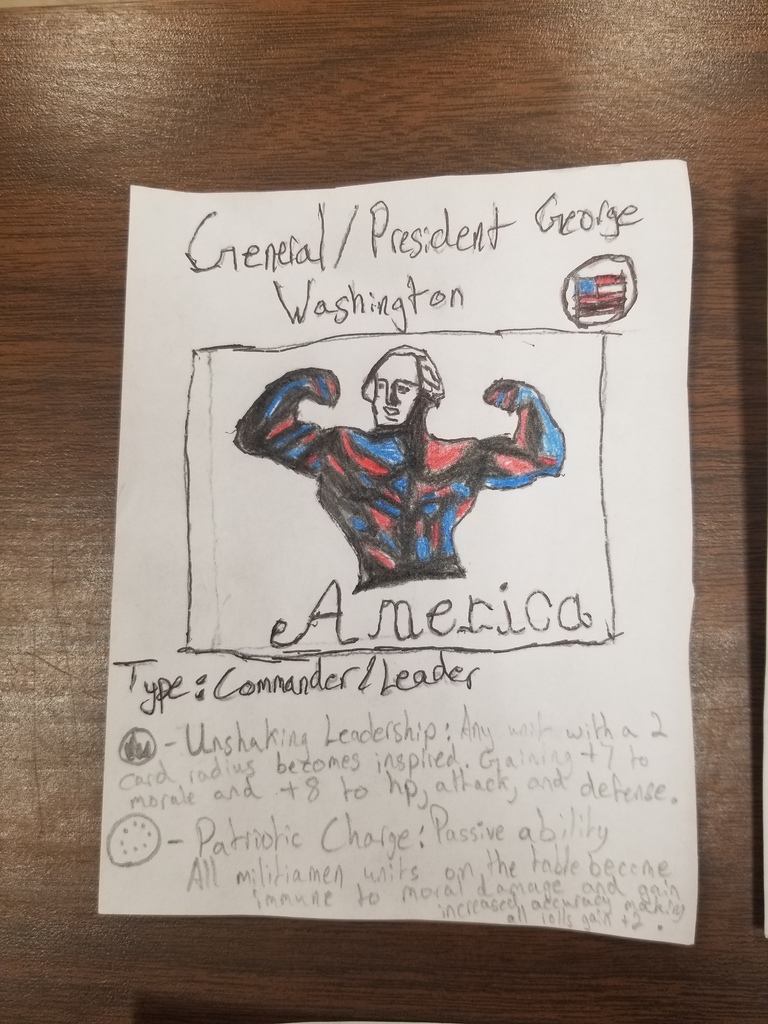 General/President George
Washington
America
Type: Commander/Leader
- Unshaking Leadership: Any unit with a 2
card radius becomes inspired. Gaining +7 to
morale and +8 to hp, attack, and defense.
- Patriotic Charge: Passive ability
All militiamen units on the table become
immune to moral damage and gain
increased accuracy making
all rolls gain +2.